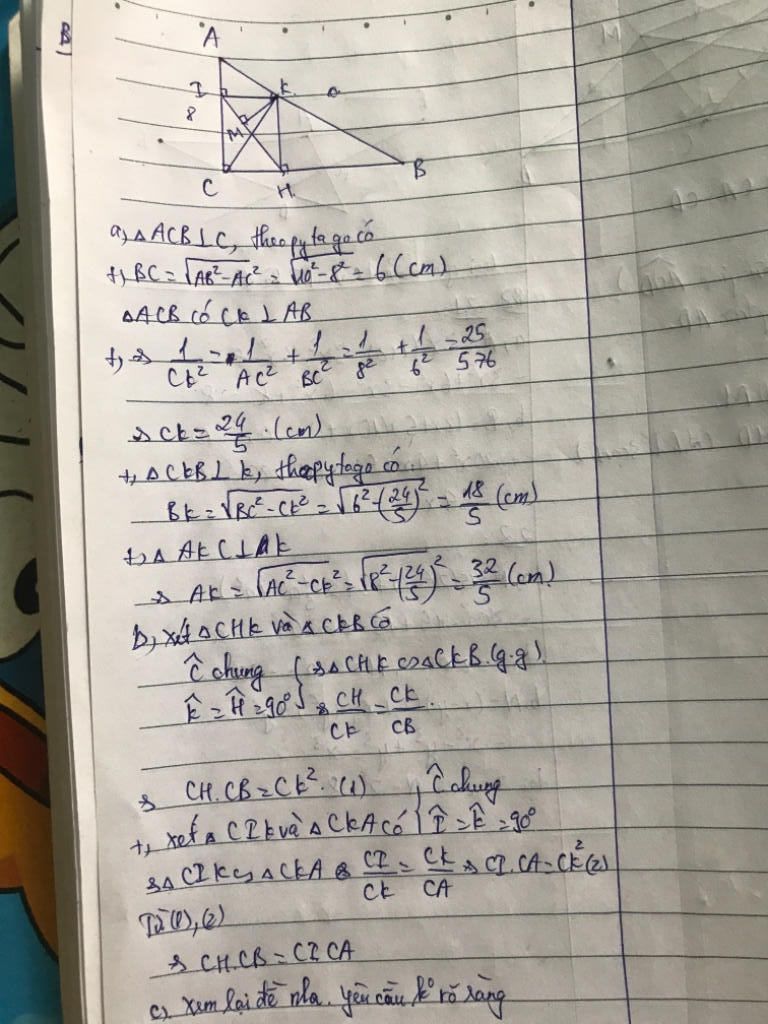 B
A
I K
8
M
C H B
a, △ACB⊥C, theo pytago có
+, BC = √(AB² - AC²) = √(10² - 8²) = 6 (cm)
△ACB có CK ⊥ AB
+, => 1/CK² = 1/AC² + 1/BC² = 1/8² + 1/6² = 25/576
=> CK = 24/5 . (cm)
+, △CKB⊥K, theo pytago có
BK = √(BC² - CK²) = √(6² - (24/5)²) = 18/5 (cm)
+, △AKC⊥K
=> AK = √(AC² - CK²) = √(8² - (24/5)²) = 32/5 (cm)
b, xét △CHK và △CKB có
Ĉ chung } => △CHK ∽ △CKB (g.g)
K̂ = Ĥ = 90° } => CH/CK = CK/CB.
=> CH.CB = CK² (1)
+, xét △CIK và △CKA có { Ĉ chung
Î = K̂ = 90°
=> △CIK ∽ △CKA => CI/CK = CK/CA => CI.CA = CK² (2)
Từ (1), (2)
=> CH.CB = CI.CA
c, xem lại đề nha. yêu cầu k° rõ ràng